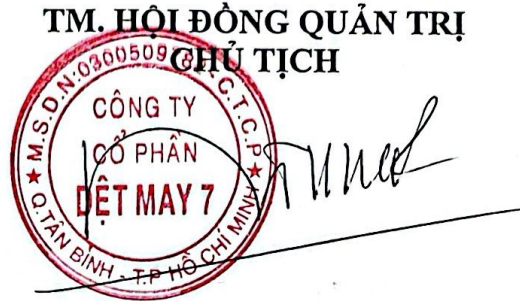 TM. HỘI ĐỒNG QUẢN TRỊ
CHỦ TỊCH
CÔNG TY
CỔ PHẦN
DỆT MAY 7
Q.TÂN BÌNH - T.P HỒ CHÍ MINH